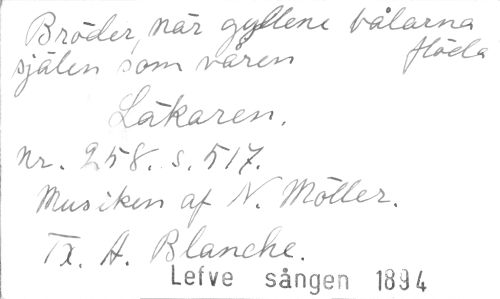 Bröder, när gyllene bålarna
själen som våren flöda
Läkaren.
Nr. 258. s. 517.
Musiken af N. Möller.
Tx. A. Blanche.
Lefve sången 1894